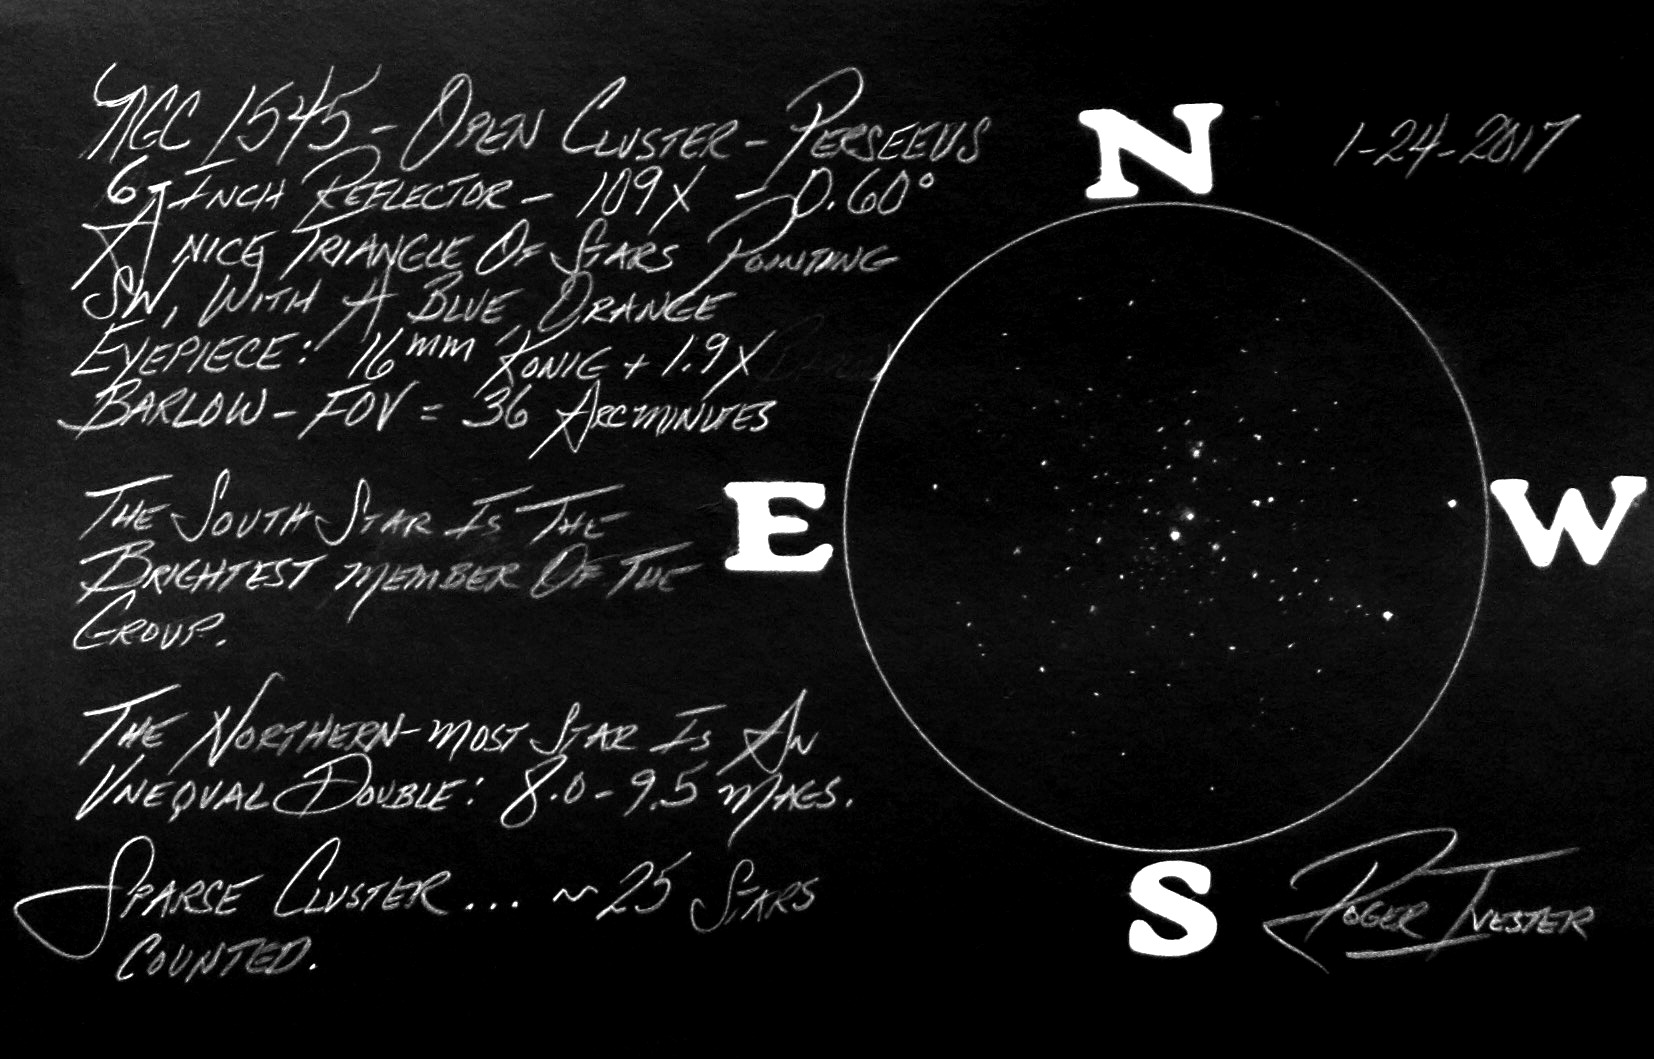 NGC 1545 - OPEN CLUSTER - PERSEEUS
6-INCH REFLECTOR - 109X - 0.60°
A NICE TRIANGLE OF STARS POINTING
SW, WITH A BLUE, ORANGE
EYEPIECE: 16mm KONIG + 1.9X
BARLOW - FOV = 36 ARCMINUTES
THE SOUTH STAR IS THE
BRIGHTEST MEMBER OF THE
GROUP.
THE NORTHERN-MOST STAR IS AN
UNEQUAL DOUBLE: 8.0 - 9.5 MAGS.
SPARSE CLUSTER... ~25 STARS
COUNTED.
N
1-24-2017
E
W
S
ROGER IVESTER